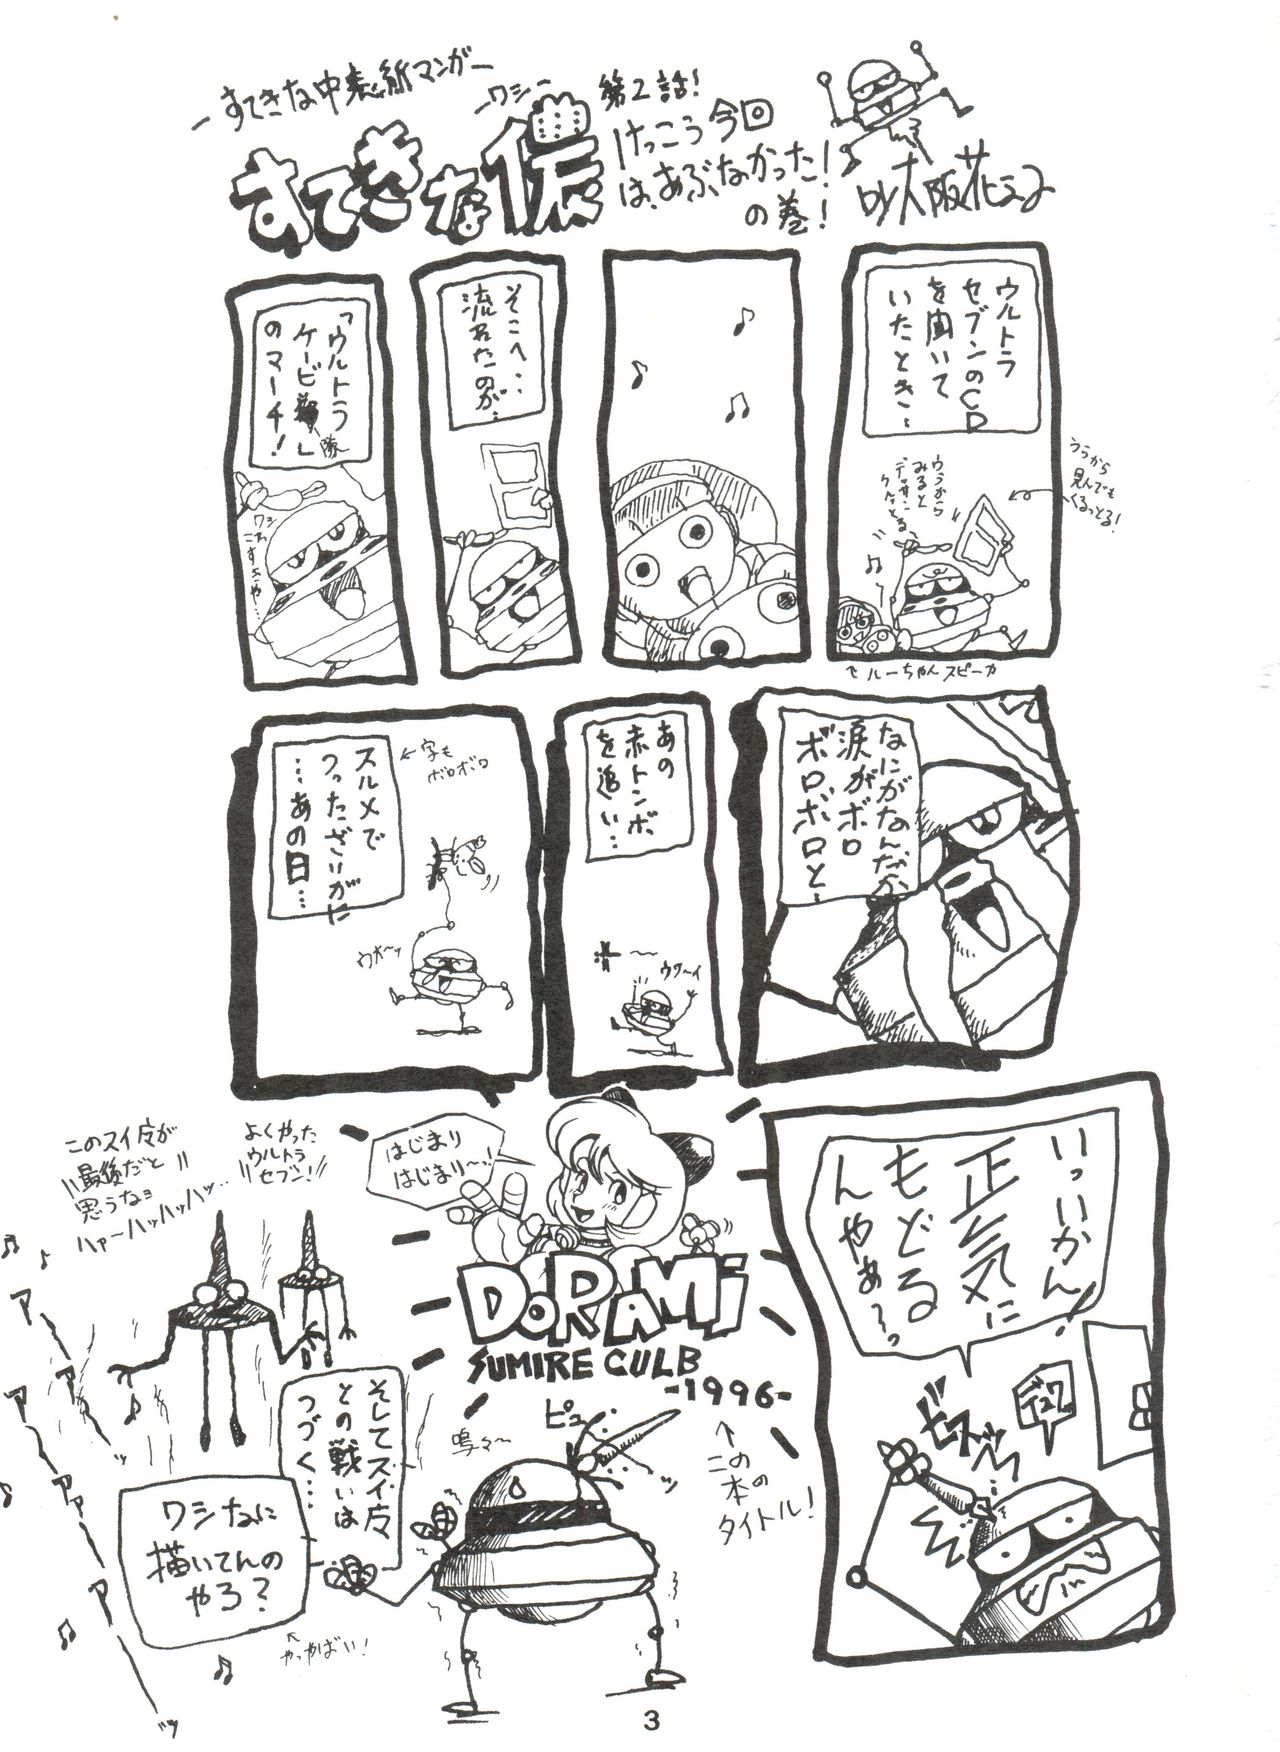 ―すてきな中表紙マンガ―
―ワシ―
すてきな儂
第2話!
けっこう今回
は、あぶなかった!
の巻!
by大阪花子
ウルトラ
セブンのCD
を聞いて
いたとき…
うらから
みると
デッサン
くるっとる、
うらから
見んでも
くるっとる!
ルーちゃんスピーカ
そこへ…
流れたのが…
「ウルトラ
ケービ隊」
のマーチ!
ワシ
なにがなんだか
涙がボロ
ボロボロと…
あの
赤トンボ
を追い…
ウワ〜イ
←字も
ボロボロ
スルメで
つったざりがに
…あの日…
ウオ〜ッ
いっいかん!
正気に
もどる
んやぁ〜っ
デュワ
ビスッッ
はじまり
はじまり〜!
DORAMi
SUMIRE CULB
-1996-
↑この
本の
タイトル!
よくやった
ウルトラ
セブン!!
このスイ星が
最後だと
思うなョ
ハァ〜ハッハッハッ…
アーッ
アァァーッ
そしてスイ星
との戦いは
つづく…
鳴々〜
ピュ〜
ッ
ワシなに
描いてんの
やろ?
やっやばい!
3